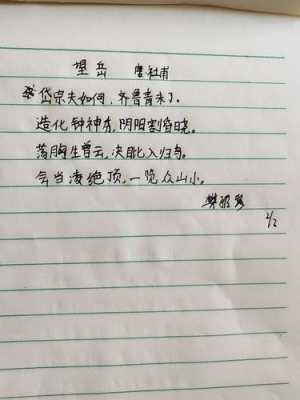 望岳 唐 杜甫
岱宗夫如何,齐鲁青未了。
造化钟神秀,阴阳割昏晓。
荡胸生曾云,决眦入归鸟。
会当凌绝顶,一览众山小。
1/2